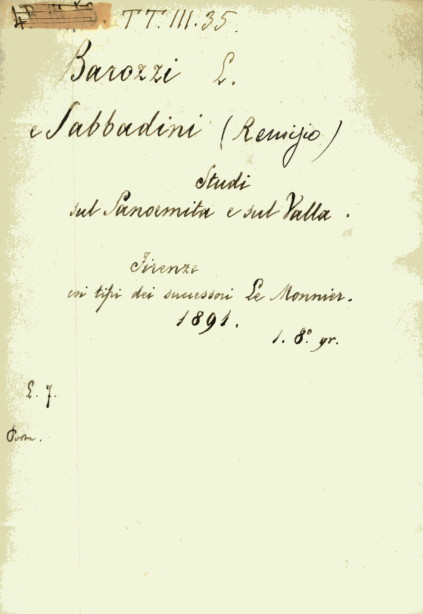 TT.III.35.
Barozzi L.
e Sabbadini (Remigio)
Studi
sul Panormita e sul Valla.
Firenze
coi tipi dei successori Le Monnier.
1891.
1. 8° gr.
L. 7.